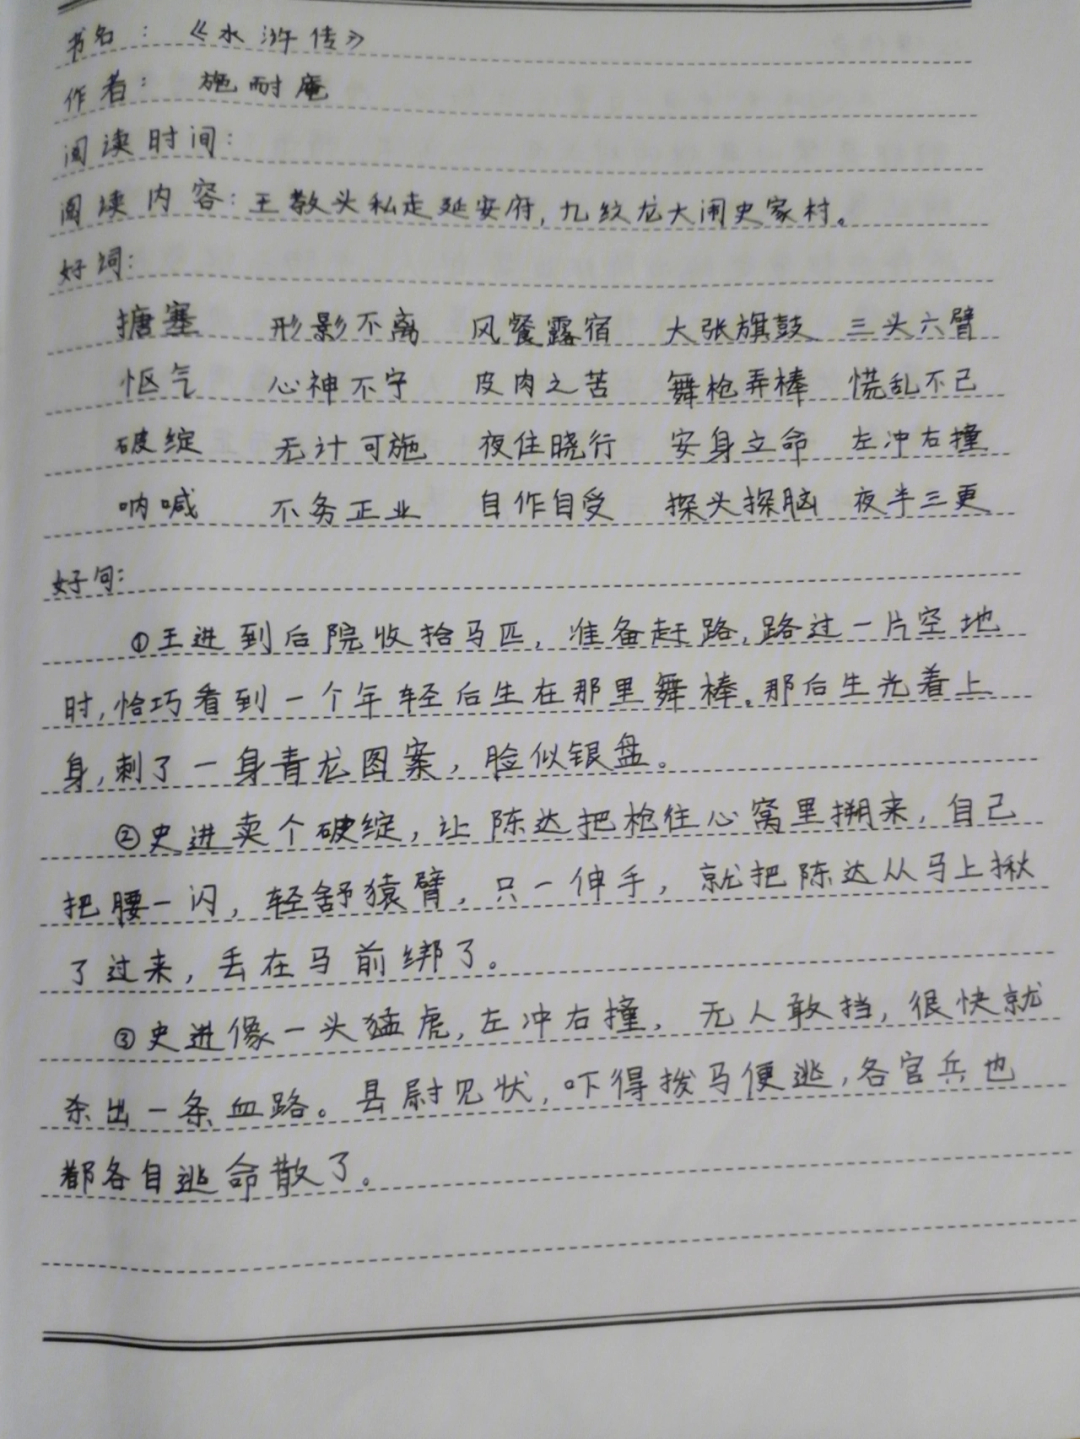 书名：《水浒传》
作者：施耐庵
阅读时间：
阅读内容：王教头私走延安府，九纹龙大闹史家村。
好词：
搪塞 形影不离 风餐露宿 大张旗鼓 三头六臂
怄气 心神不宁 皮肉之苦 舞枪弄棒 慌乱不己
破绽 无计可施 夜住晓行 安身立命 左冲右撞
呐喊 不务正业 自作自受 探头探脑 夜半三更
好句：
①王进到后院收拾马匹，准备赶路，路过一片空地
时，恰巧看到一个年轻后生在那里舞棒。那后生光着上
身，刺了一身青龙图案，脸似银盘。
②史进卖个破绽，让陈达把枪往心窝里搠来，自己
把腰一闪，轻舒猿臂，只一伸手，就把陈达从马上揪
了过来，丢在马前绑了。
③史进像一头猛虎，左冲右撞，无人敢挡，很快就
杀出一条血路。县尉见状，吓得拨马便逃，各官兵也
都各自逃命散了。